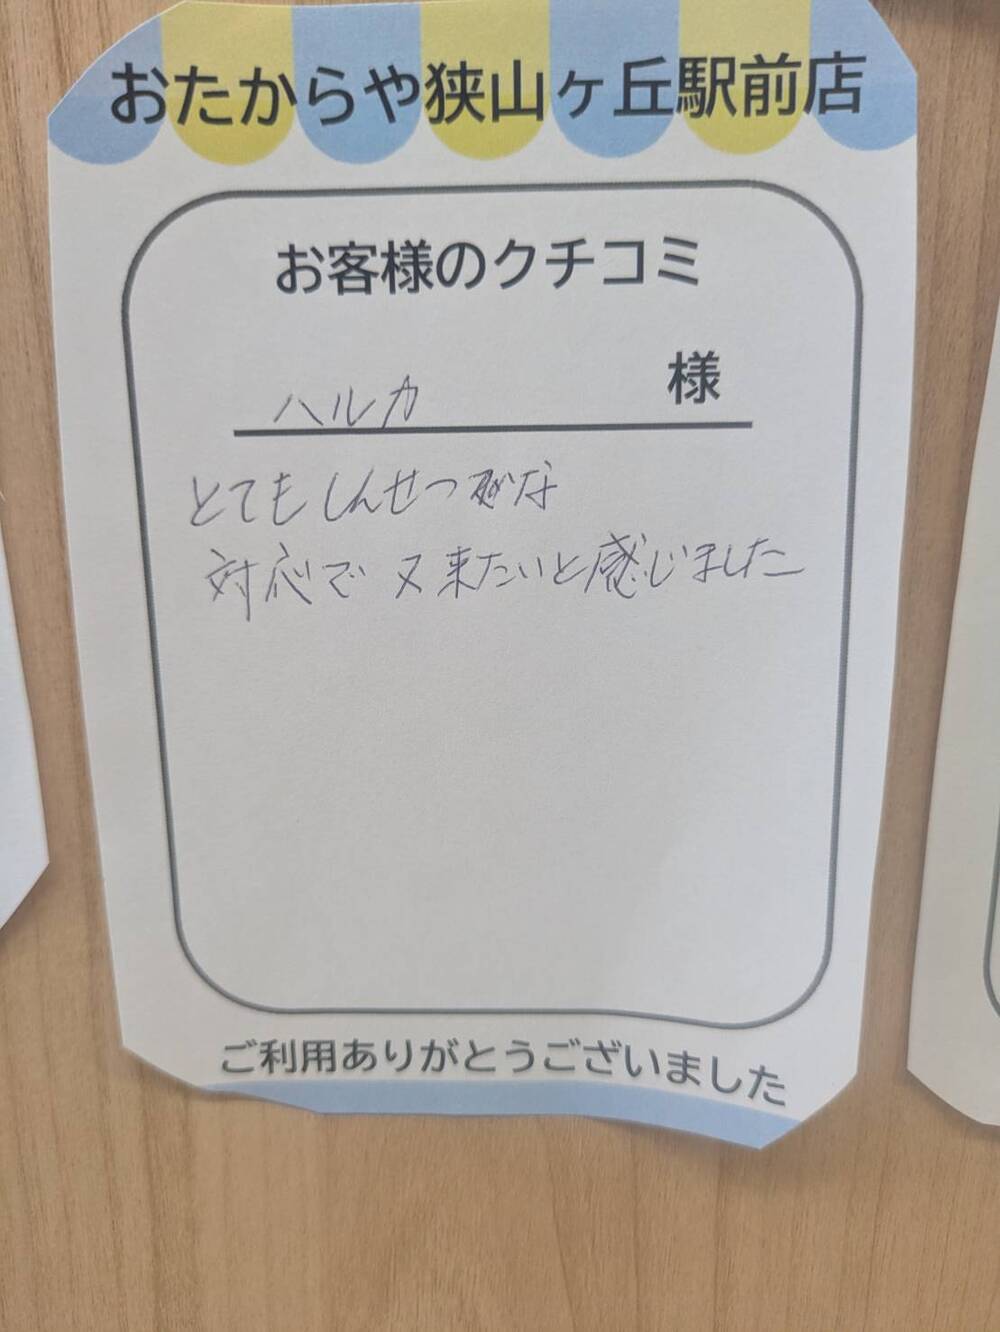 おたからや狭山ヶ丘駅前店
お客様のクチコミ
ハルカ 様
とてもしんせつな
対応で又来たいと感じました
ご利用ありがとうございました